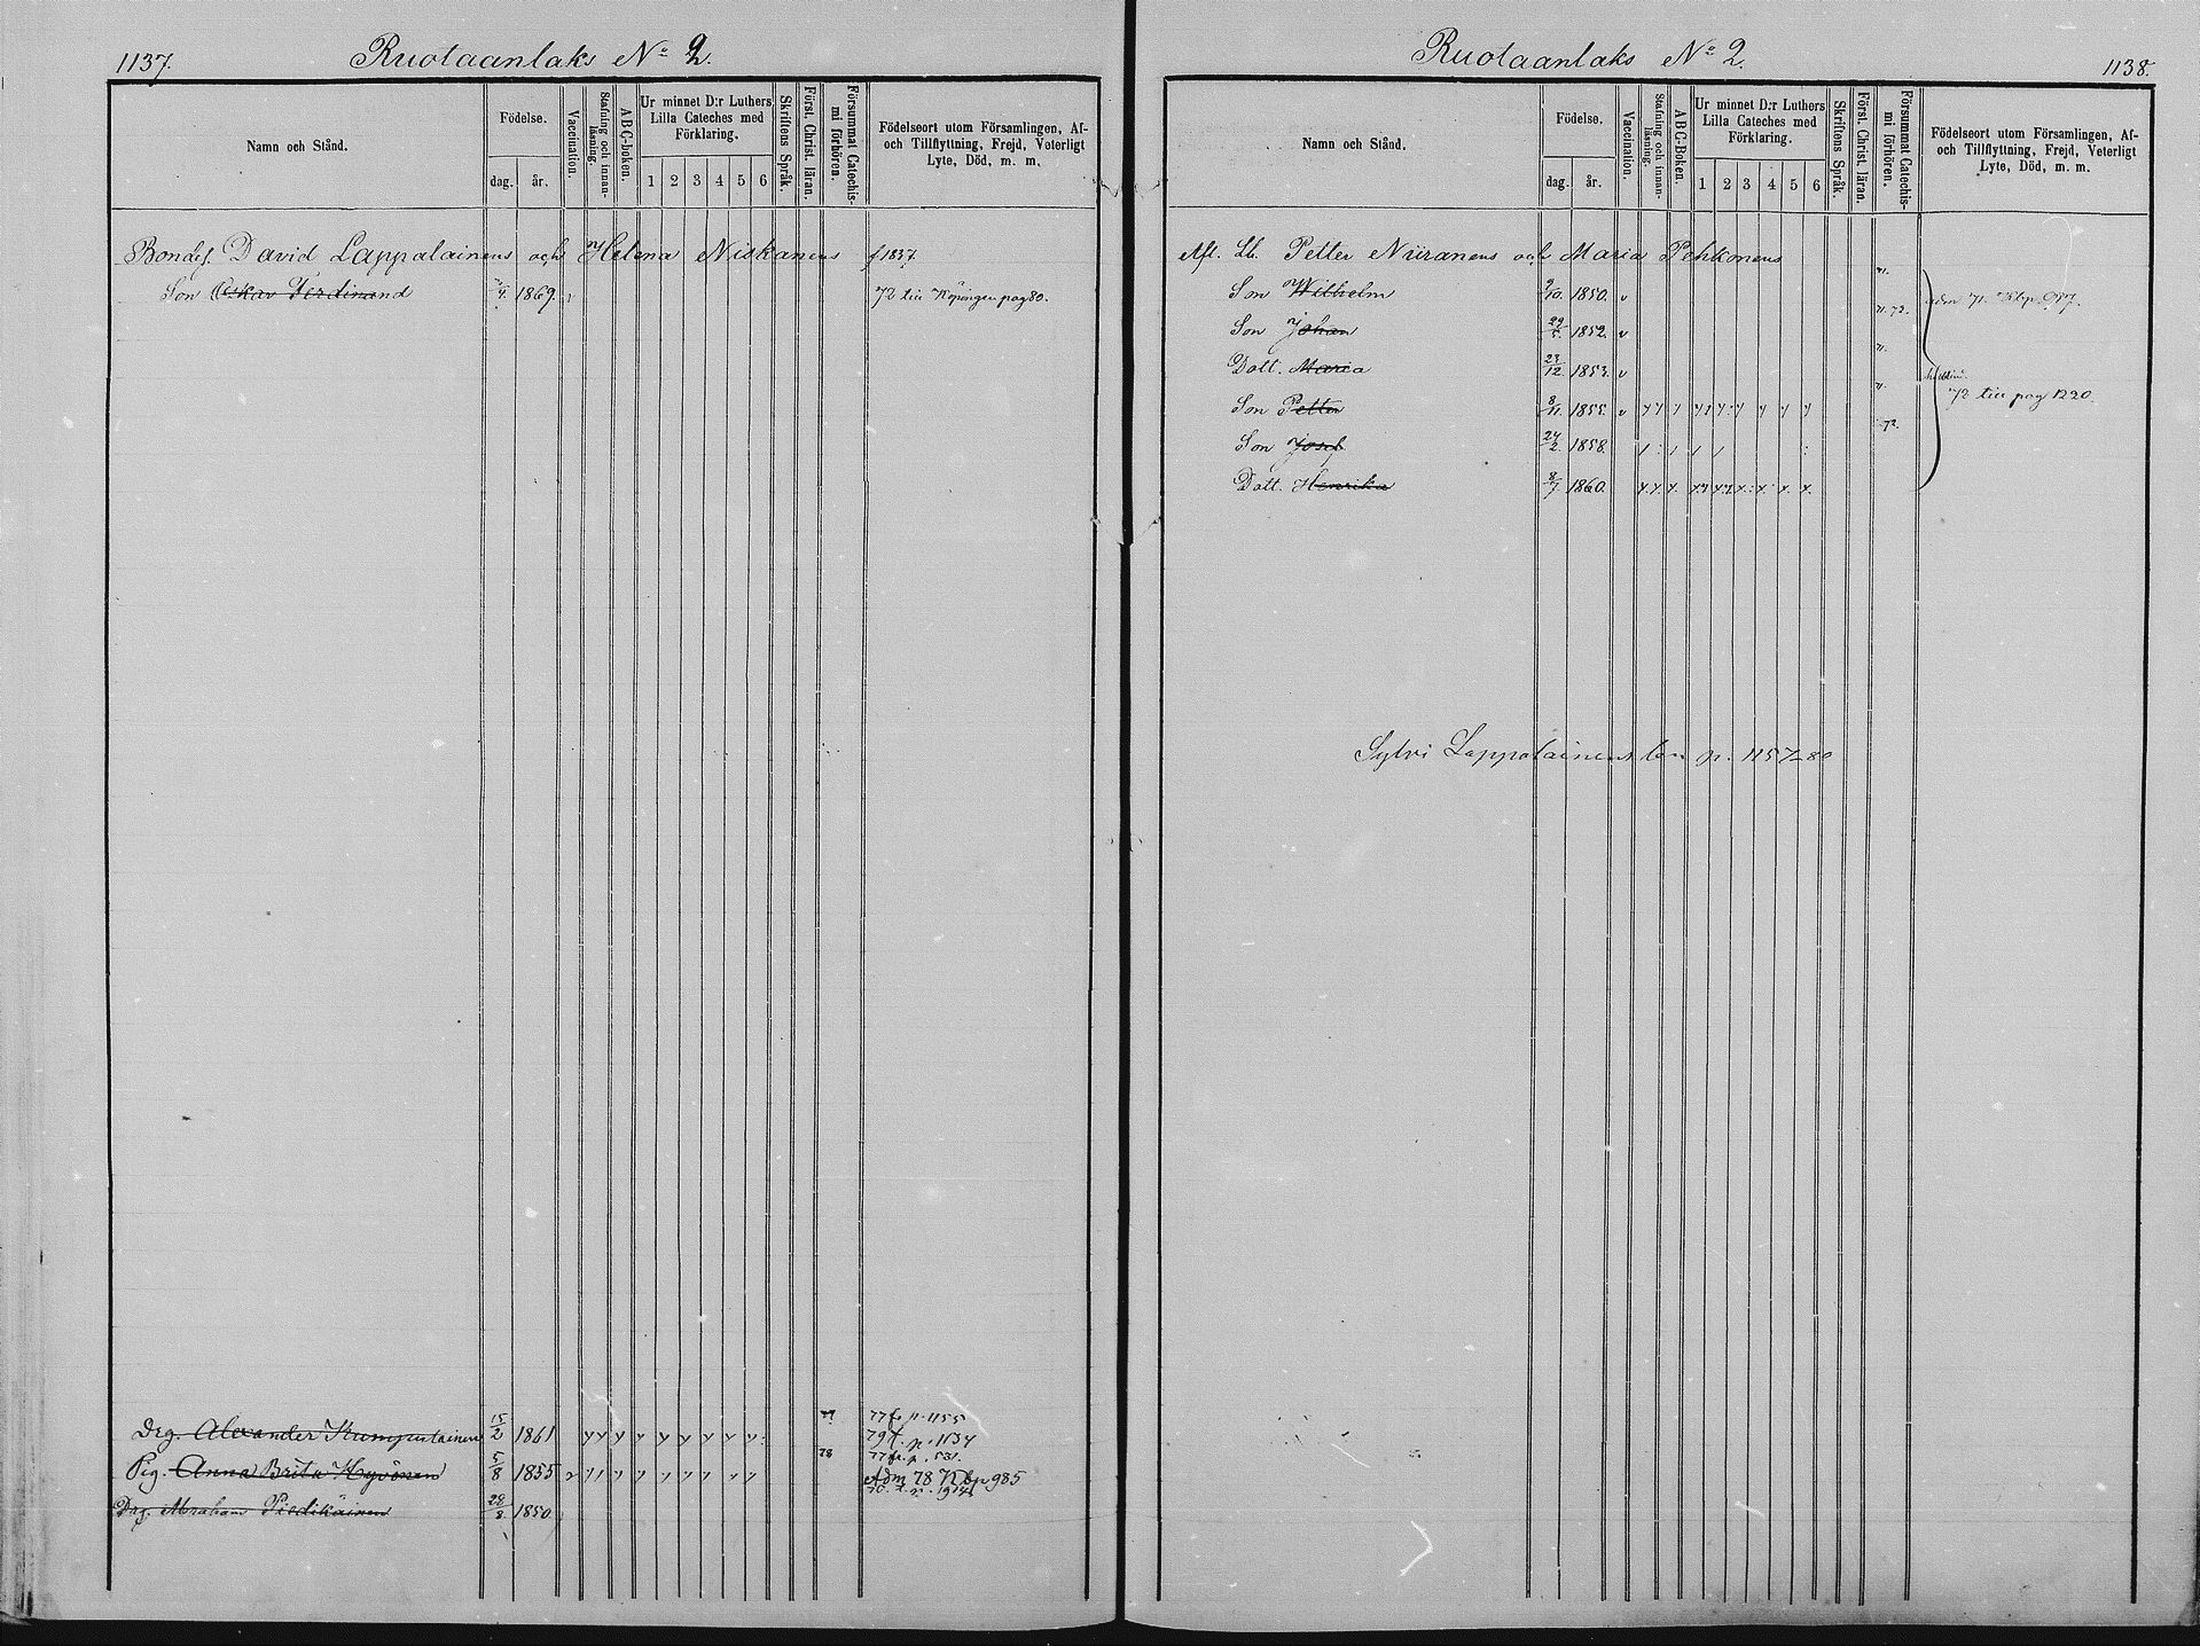 1137. Ruotaanlaks No 2.
Namn och Stånd.
Födelse.
dag. år.
Vaccination.
Stafning och innanläsning.
ABC-boken.
Ur minnet D:r Luthers
Lilla Cateches med
Förklaring.
1 2 3 4 5 6
Skriftens Språk.
Först. Christ. läran.
Försummat Catechismi förhören.
Födelseort utom Församlingen, Af-
och Tillflyttning, Frejd, Veterligt
Lyte, Död, m. m.
Bondes. David Lappalainens och Helena Niskanens f 1837
Son Oskar Ferdinand /4. 1869. 72 till Köpingen pag 80.
77 fr p. 1155
Drg. Alexander Kumpulainen 15/2 1861 77 79 t. p. 1634
77 fr. p. 531.
Pig. Anna Brita Hyvönen 5/8 1855 78 Adm 78 Klbp 985
Drg. Abraham Piedikäinen 28/8. 1850
Ruotaanlaks No 2. 1138.
Namn och Stånd.
Födelse.
dag. år.
Vaccination.
Stafning och innan-
läsning.
ABC-Boken.
Ur minnet D:r Luthers
Lilla Cateches med
Förklaring.
1 2 3 4 5 6
Skriftens Språk.
Först. Christ. läran.
Försummat Catechis-
mi förhören.
Födelseort utom Församlingen, Af-
och Tillflyttning, Frejd, Veterligt
Lyte, Död, m. m.
Afl. Lb. Petter Niiranens och Maria Pehkonens
Son Wilhelm 9/10. 1850. v 71. adm 71. Klbp 957.
Son Johan 29/5. 1852. v 71. 72.
Dott. Maria 23/12. 1853. v 71.
Son Petter 8/11. 1855. v 71. 72 till pag 1220.
Son Josef 24/2. 1858. 72.
Dott. Henrika 8/7. 1860.
Sylvi Lappalainens p. 1157-80